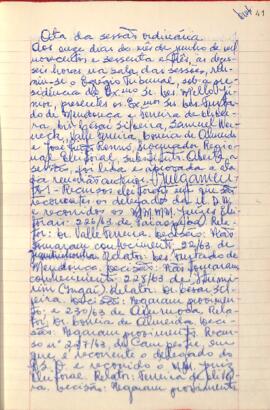 41
Ata da sessão ordinária
Aos onze dias do mês de junho de mil
novecentos e sessenta e três, às dezes-
seis horas na sala das sessões, reu-
niu-se o Egrégio Tribunal, sob a pre-
sidência do Exmo Sr. Des. Mello Jú-
nior, presentes os Exmos Srs. Des. Furta-
do de Mendonça e Ferreira de Oliveira
ra, Drs. Cesar Silveira, Samuel
Valle Ferreira, Correia de Almeida
e José Procurador Regional
Eleitoral, substituto. Aberta a
sessão, foi lida e aprovada a ata
da reunião anterior. Julgamen-
tos - Recursos eleitorais em que são
recorrentes os delegados da U.D.N.
e recorridos os MM. Juízes Elei-
torais: 226/63 de Rela-
tor: Dr. Valle Ferreira. Decisão: Não
tomaram conhecimento; 227/63 de
Relator: Des. Furtado de
Mendonça. Decisão: Não tomaram
conhecimento; 228/63 de
rim (Ingaí). Relator: Dr. Cesar Sil-
veira. Decisão: Negaram provimen-
to; e 230/63 de Rela-
tor: Dr. Correia de Almeida. Decisão
são: Negaram provimento; Recur-
so nº 217/63 de Campestre, em
que é recorrente o delegado do
P.S.D. e recorrido o MM. Juiz
Eleitoral. Relator: Ferreira de Olivei-
ra. Decisão: Negaram provimento